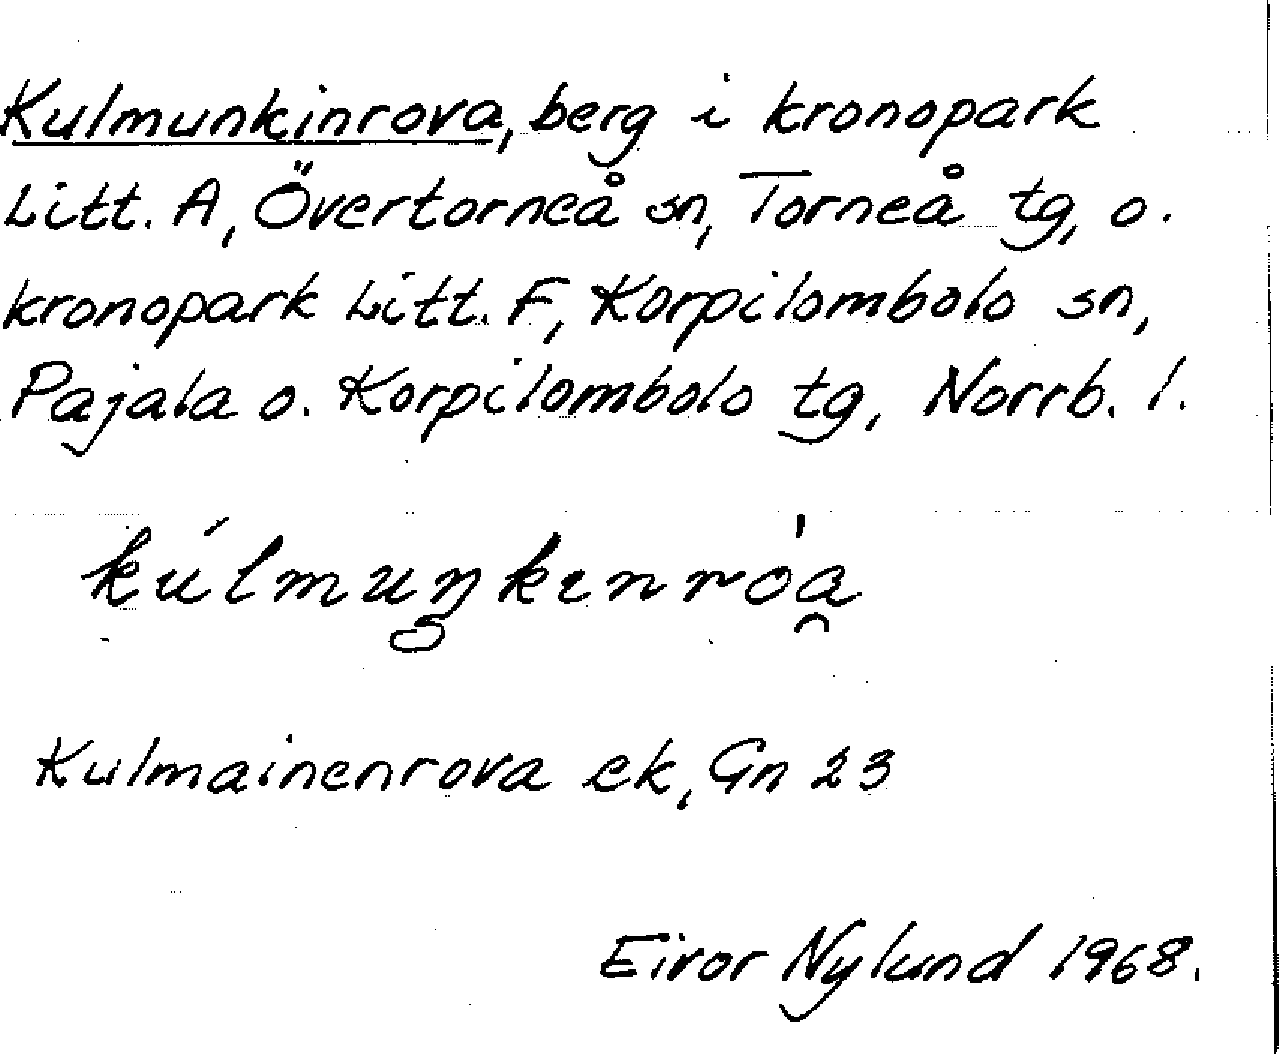 Kulmunkinrova, berg i kronopark
Litt. A, Övertorneå sn, Torneå tg, o.
kronopark Litt. F, Korpilombolo sn,
Pajala o. Korpilombolo tg, Norrb. l.
kúlmuŋkınró̍a̯
Kulmainenrova ek, Gn 23
Eivor Nylund 1968.